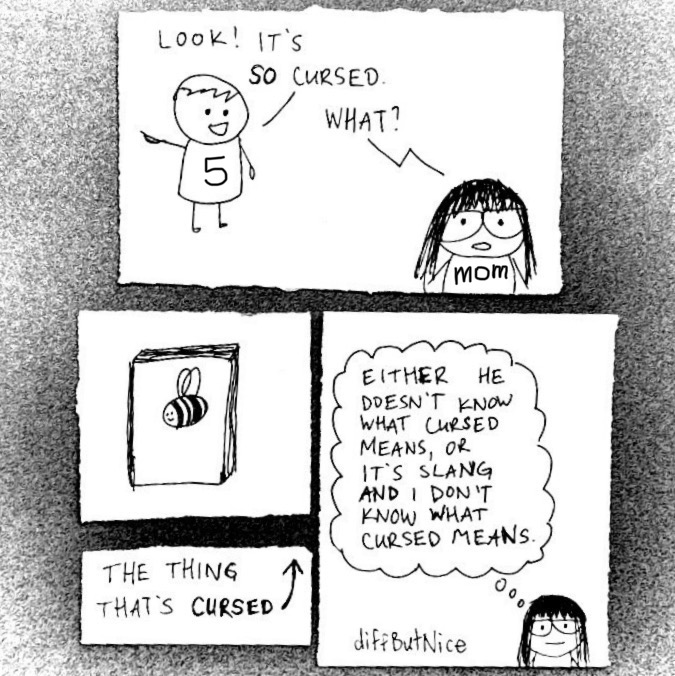 LOOK! IT'S
SO CURSED.
WHAT?
5
MOM
THE THING
THAT'S CURSED
EITHER HE
DOESN'T KNOW
WHAT CURSED
MEANS, OR
IT'S SLANG
AND I DON'T
KNOW WHAT
CURSED MEANS.
diffButNice